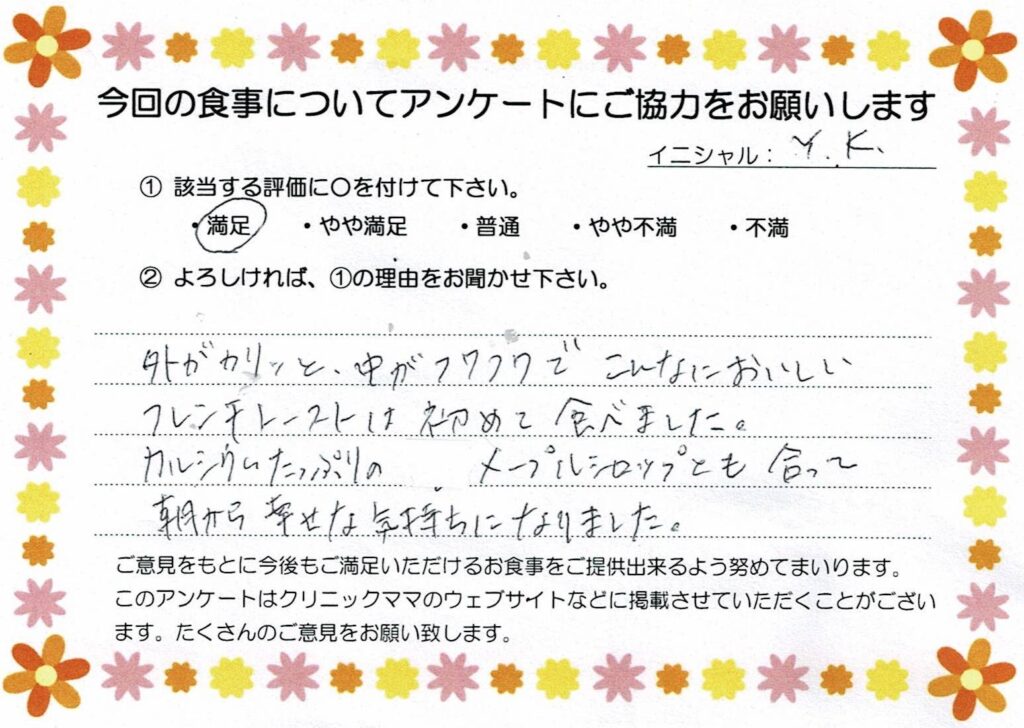 今回の食事についてアンケートにご協力をお願いします
イニシャル： Y.K.
① 該当する評価に〇を付けて下さい。
・満足 ・やや満足 ・普通 ・やや不満 ・不満
② よろしければ、①の理由をお聞かせ下さい。
外がカリッと、中がフワフワで こんなにおいしい
フレンチトーストは初めて食べました。
カルシウムたっぷりの メープルシロップとも合って
朝から幸せな気持ちになりました。
ご意見をもとに今後もご満足いただけるお食事をご提供出来るよう努めてまいります。
このアンケートはクリニックママのウェブサイトなどに掲載させていただくことがござい
ます。たくさんのご意見をお願い致します。